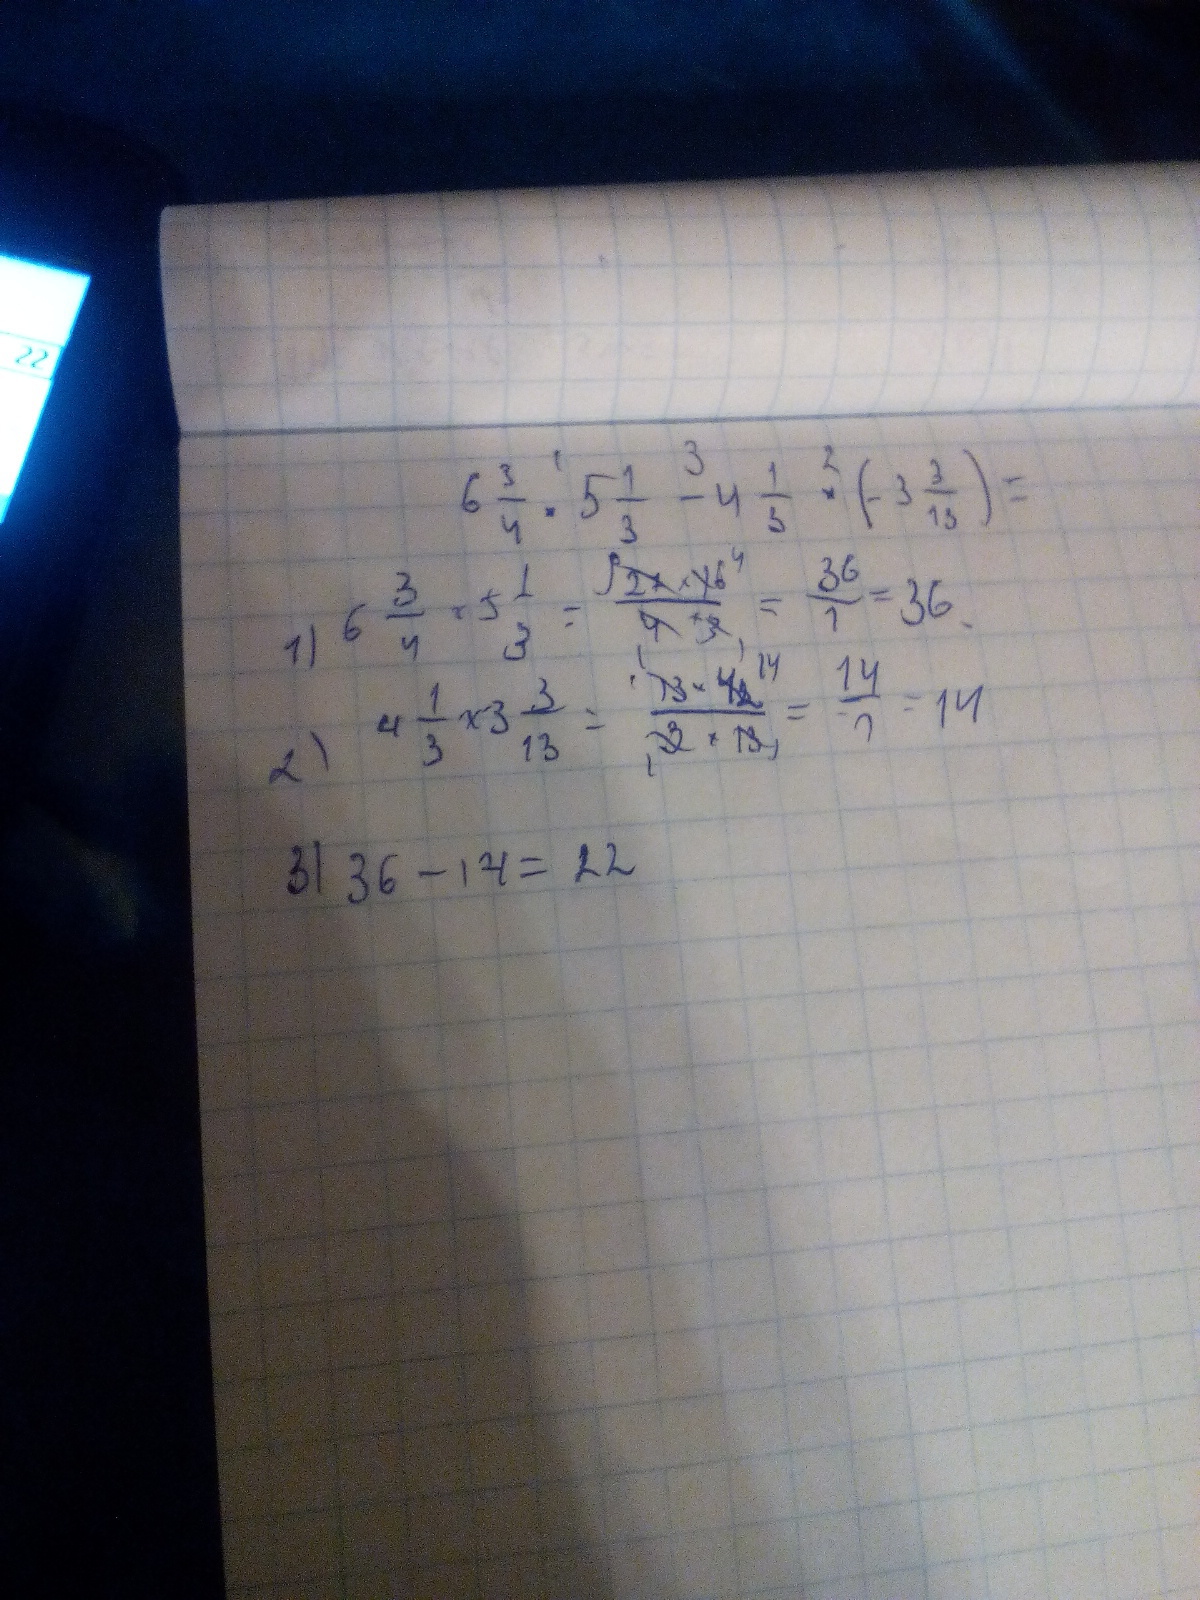 22
6 3/4 · 5 1/3 - 4 1/3 · (-3 3/13) =
1) 6 3/4 · 5 1/3 = 27 · 16 / 4 · 3 = 36/1 = 36.
2) 4 1/3 × 3 3/13 = 13 · 42 / 3 · 13 = 14/1 = 14
3) 36 - 14 = 22